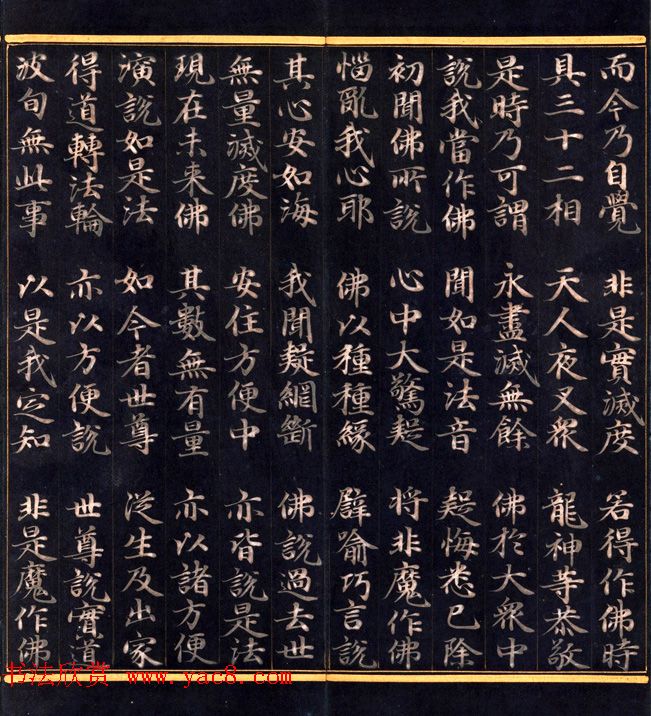 而今乃自覺 非是實滅度 若得作佛時
具三十二相 天人夜叉眾 龍神等恭敬
是時乃可謂 永盡滅無餘 佛於大眾中
說我當作佛 聞如是法音 疑悔悉已除
初聞佛所說 心中大驚疑 將非魔作佛
惱亂我心耶 佛以種種緣 譬喻巧言說
其心安如海 我聞疑網斷 佛說過去世
無量滅度佛 安住方便中 亦皆說是法
現在未來佛 其數無有量 亦以諸方便
演說如是法 如今者世尊 從生及出家
得道轉法輪 亦以方便說 世尊說實道
波旬無此事 以是我定知 非是魔作佛
书法欣赏 www.yac8.com